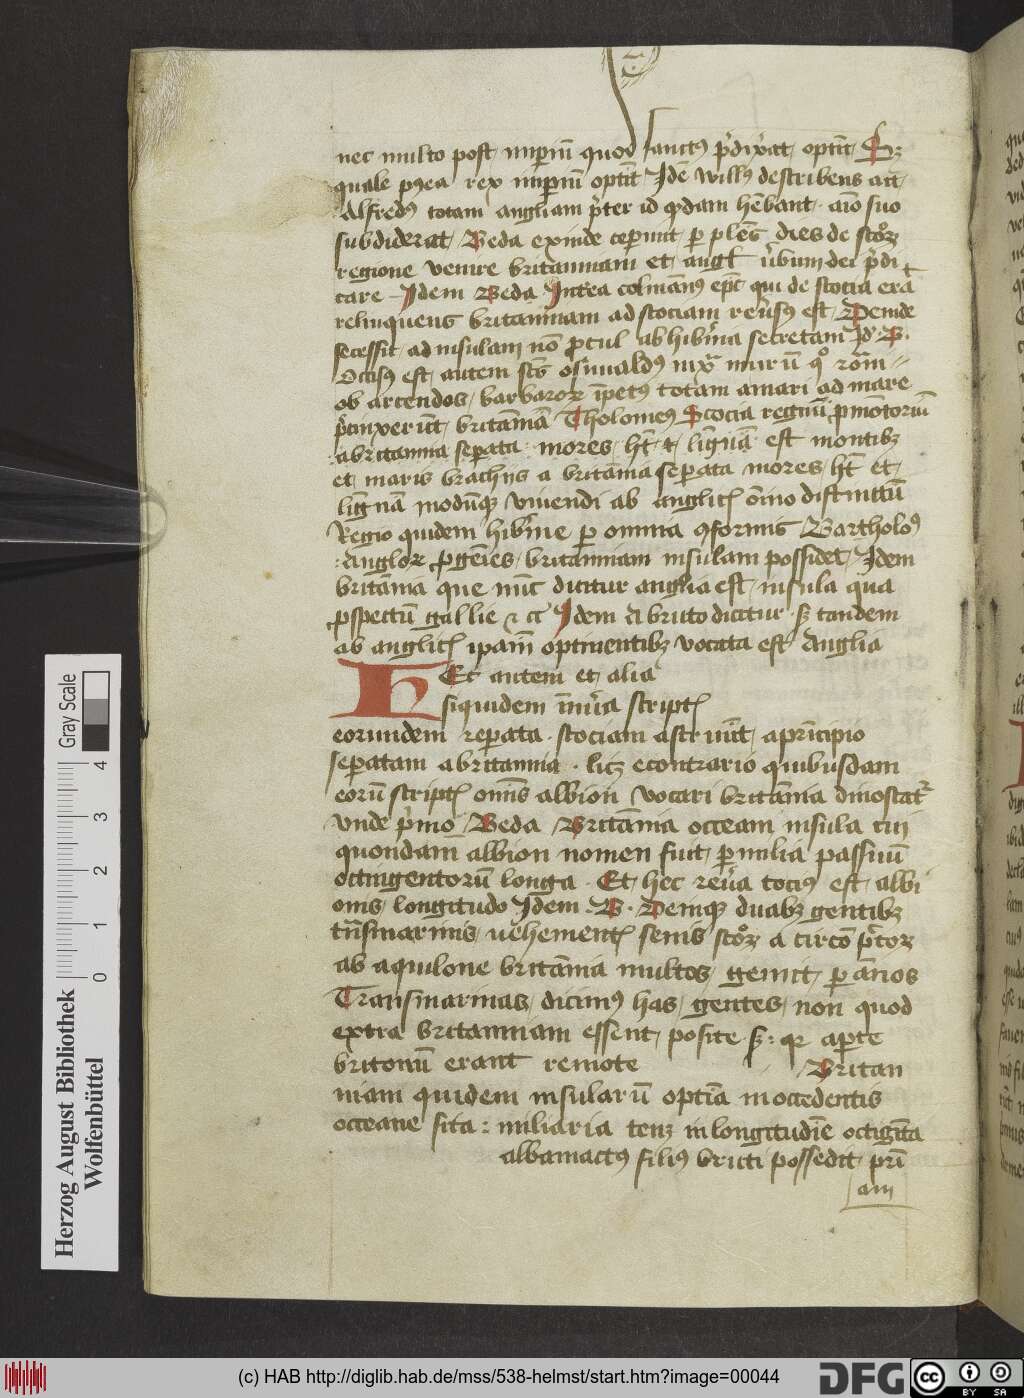 nec multo post imperiū quod sanctus p̄dixerat optīt S3
quale postea rex imperiū optīt Idē Willus describens ait
Alfredus totam angliam p̄ter id quodam hēbant aīo suo
subdiderat Beda exinde ceperunt per plēs dies de scoto3
regione venire britanniam et angl verbum dei p̄di
care Idem Beda Interea colmanus epc qui de scocia erat
relinquens britanniam ad scociam reversus est Deinde
secessit ad insulam nō procul ab hibernia secretam Id B
Occisus est autem scs oswaldus iuxta murū quo rom
ob arcendos barbaror impetus totam a mari ad mare
p̄cinxerūt britāniā Tholomeus Scocia regnū promōtoriū
a britannia seperata mores ht et lignuā est montib3
et maris brachijs a britānia seperata mores ht et
lignuā modūque vivendi ab anglicis omīo distinctū
Regio quidem hibernie per omnia conformis Bartholo9
Anglor progēies britanniam insulam possidet Idem
britānia que nūc dicitur anglia est insula qua
prospectū gallie et cet Idem A bruto dicitur s3 tandem
ab anglicis ipam optinentib3 vocata est Anglia
Hec autem et alia
siquidem inn̄ia scriptis
eorundem reperata scociam astruūt a principio
seperatam a britannia lic3 econtrario quibusdam
eorū scriptis omīs albion vocari britānia dinoscatr
Vnde primo Beda Britānia occeani insula cui
quondam albion nomen fuit per milia passuū
octingentorū longa Et hec revera tocius est albi
onis longitudo Idem B Deinque duab3 gentib3
transmarinis vehementer sevis scoto3 a circō pictor
ab aquilone britānia multos gemit per annos
Transmarinas dicimus has gentes non quod
extra britanniam essent posite s3 quia a parte
britonū erant remote Britan
niam quidem insularū optīa in occedentis
occeane sita miliaria tenz in longitudīe octigēta
albanactus filius bricti possedit prī
am
Gray Scale
4 3 2 1 0
Herzog August Bibliothek
Wolfenbüttel
(c) HAB http://diglib.hab.de/mss/538-helmst/start.htm?image=00044
DFG
CC BY SA